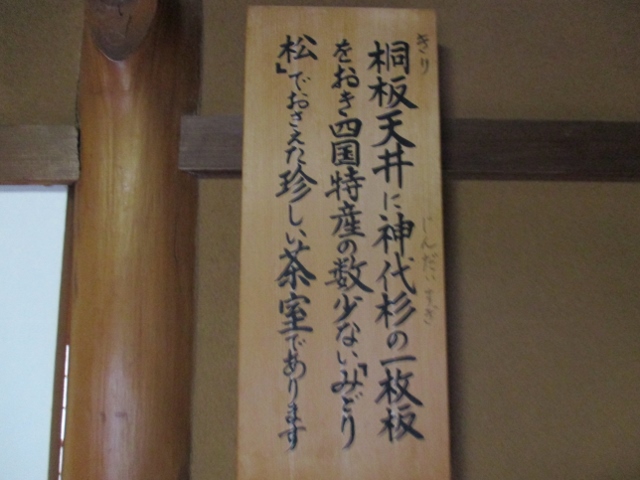 桐板天井に神代杉の一枚板
きり
じんだいすぎ
をおき四国特産の数少ない『みどり
松』でおさえた珍しい茶室であります